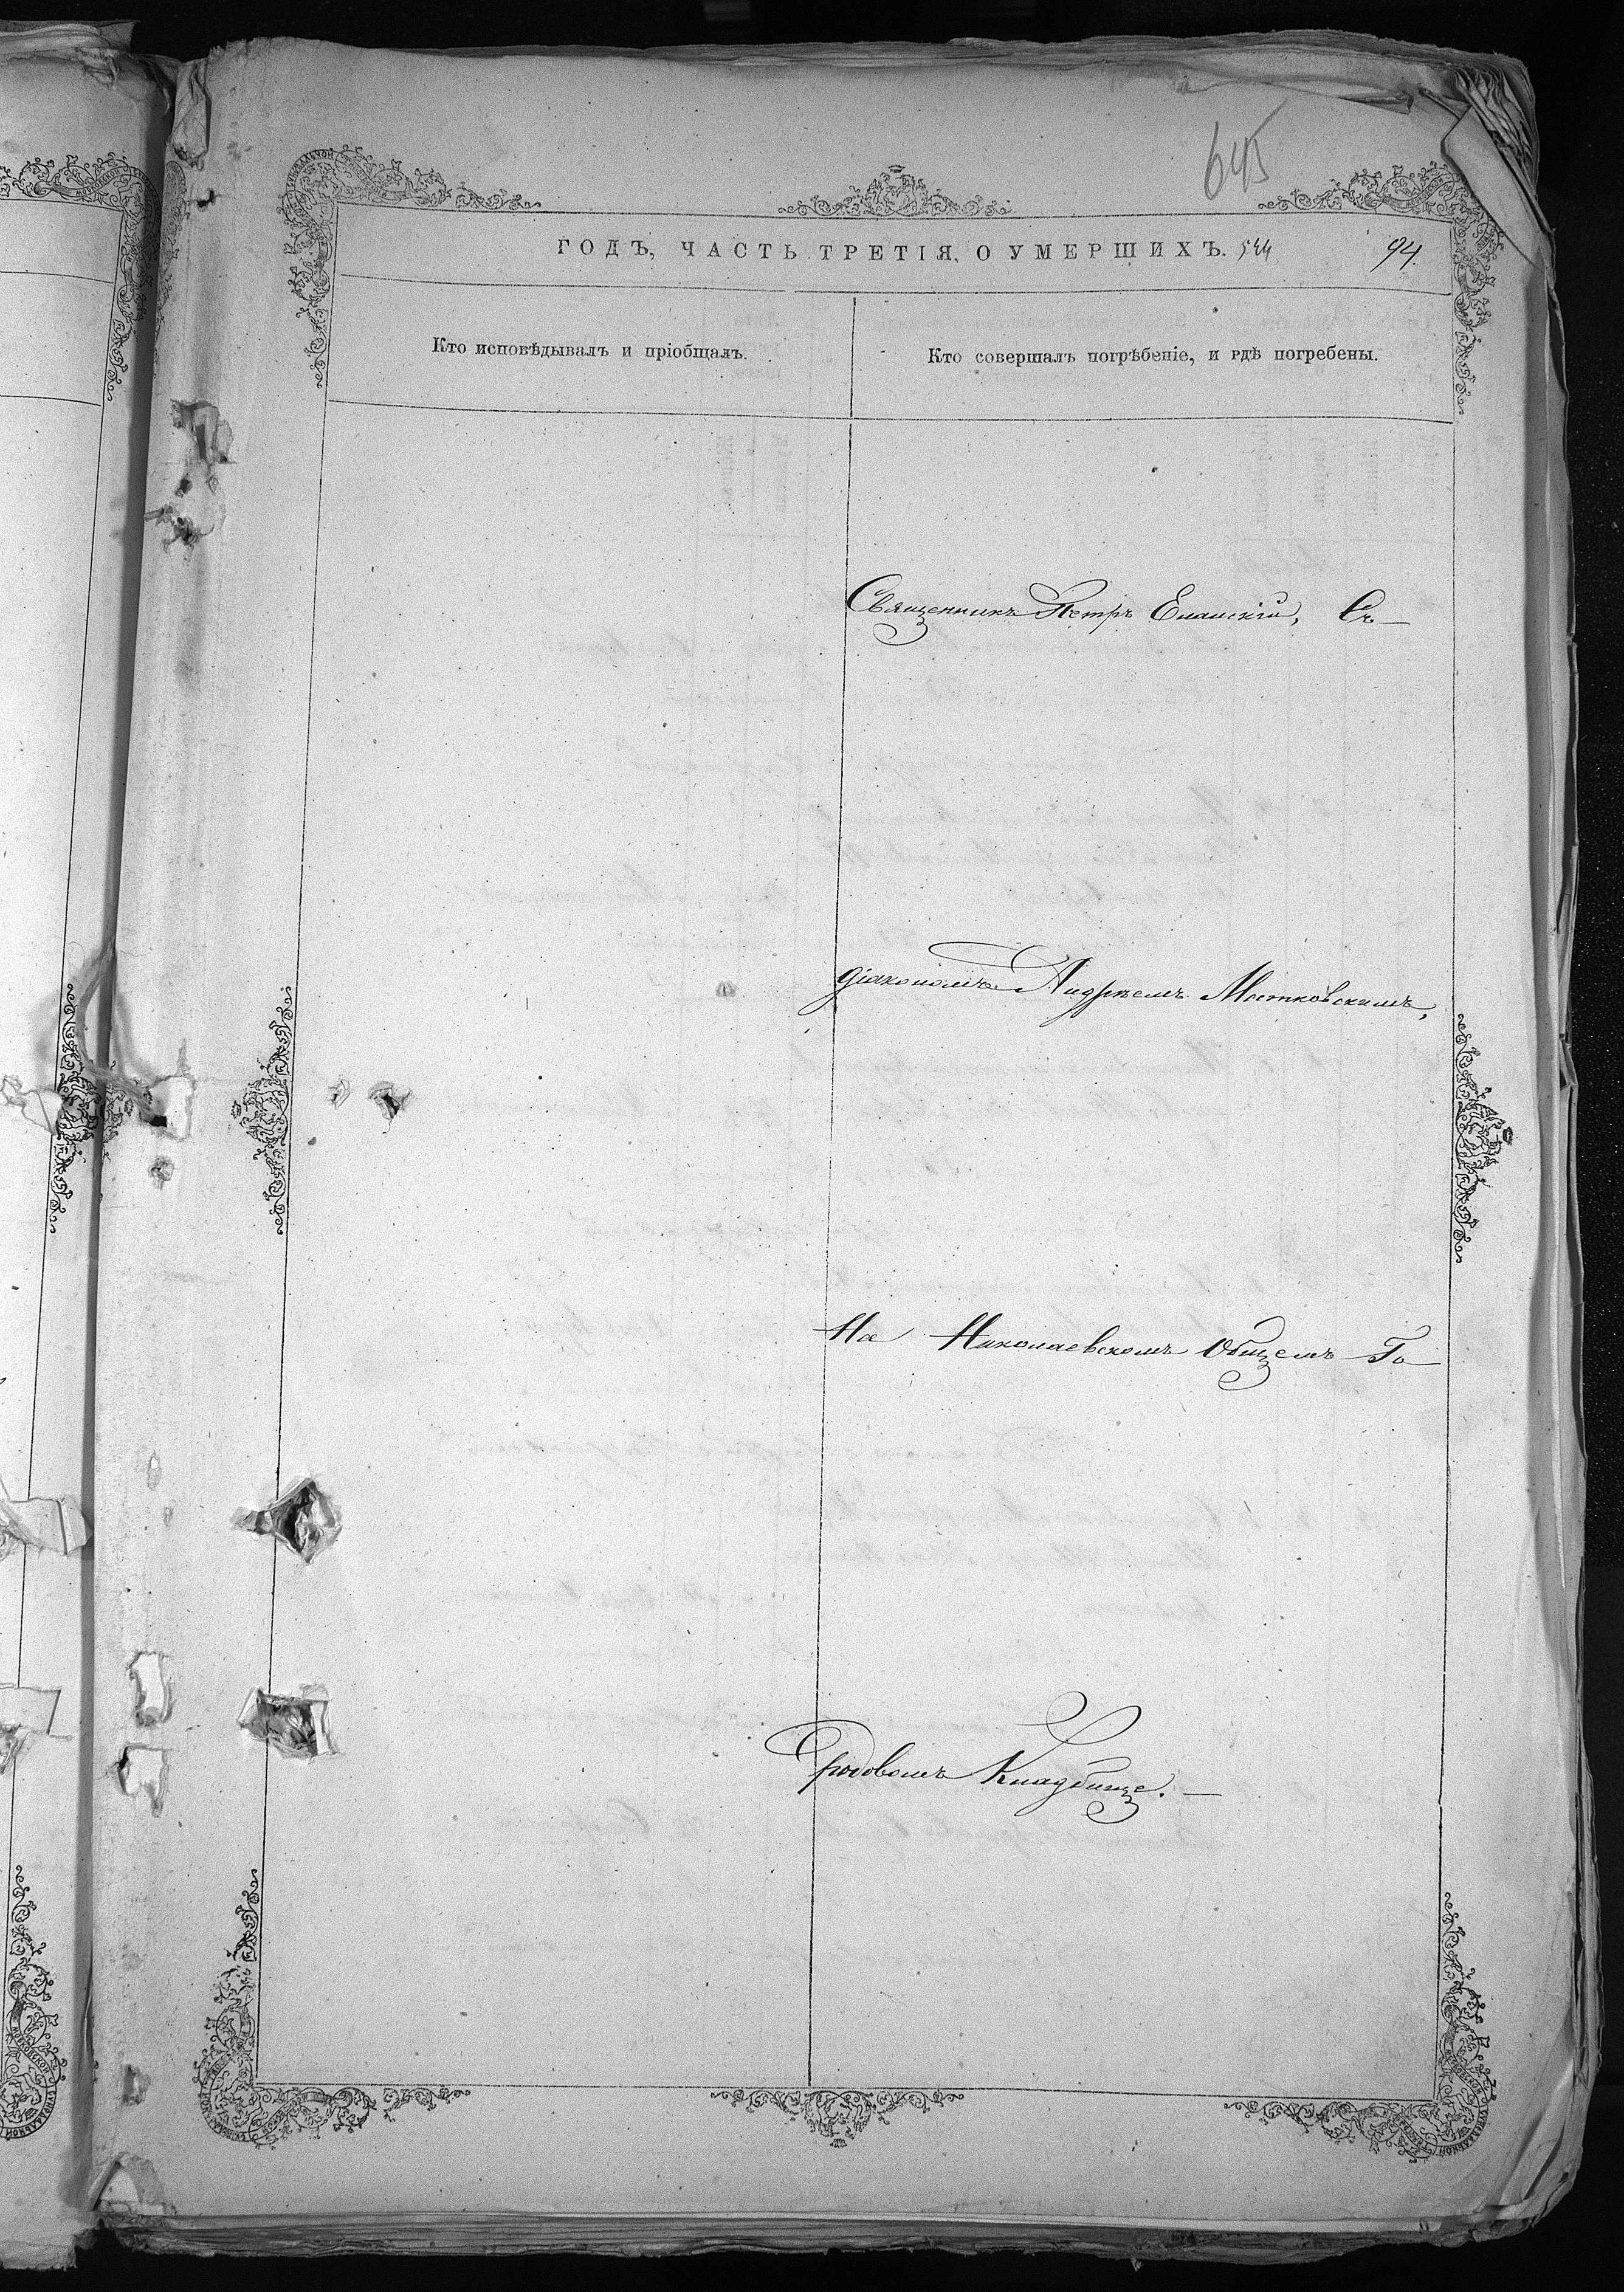 645
ГОДЪ, ЧАСТЬ ТРЕТІЯ, О УМЕРШИХЪ. 544 94.
Кто исповѣдывалъ и пріобщалъ.
Кто совершалъ погрѣбеніе, и гдѣ погребены.
Священникъ Петръ Еланскій, Съ
діакономъ Андреемъ Мстковскимъ,
На Николаевскомъ Общемъ Го
родовомъ Кладбище.